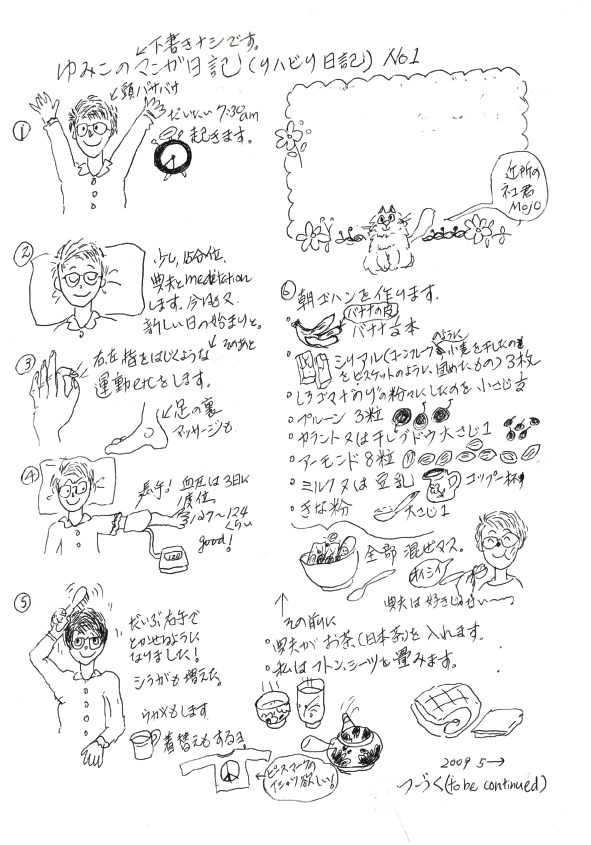 下書きナシです。
ゆみこのマンガ日記(リハビリ日記) No1
頭バサバサ
①
だいたい7:30am
起きます。
近所の
ネコ君
MOJO
②
少し,15分位、
奥夫とmeditation
します。今日も又
新しい日の始まりと。
そのあと
③
右左指をはじくような
運動etcをします。
足の裏
マッサージも
④
血圧は3日に
1度位。
127〜124
くらい
good!
120
⑤
だいぶ右手で
とかせるように
なりました!
シラガも増えた。
ウガイもします
着替えもするョ
ピースマークの
Tシャツ欲しい!
⑥朝ゴハンを作ります。
バナナの皮
バナナ 1/2本
シリアル(コーンフレークのように小麦を干したの
をビスケットのように固めたもの)3枚
・プルーン 3粒
・カラント又は干しブドウ大さじ1
・アーモンド8粒
・ミルク又は豆乳 コップ一杯
・きな粉 大さじ1
全部混ぜマス。
オイシイ
↑
その前に
・奥夫がお茶(日本茶)を入れます。
・私はフトン、シーツを畳みます。
2009 5→
つづく(to be continued)